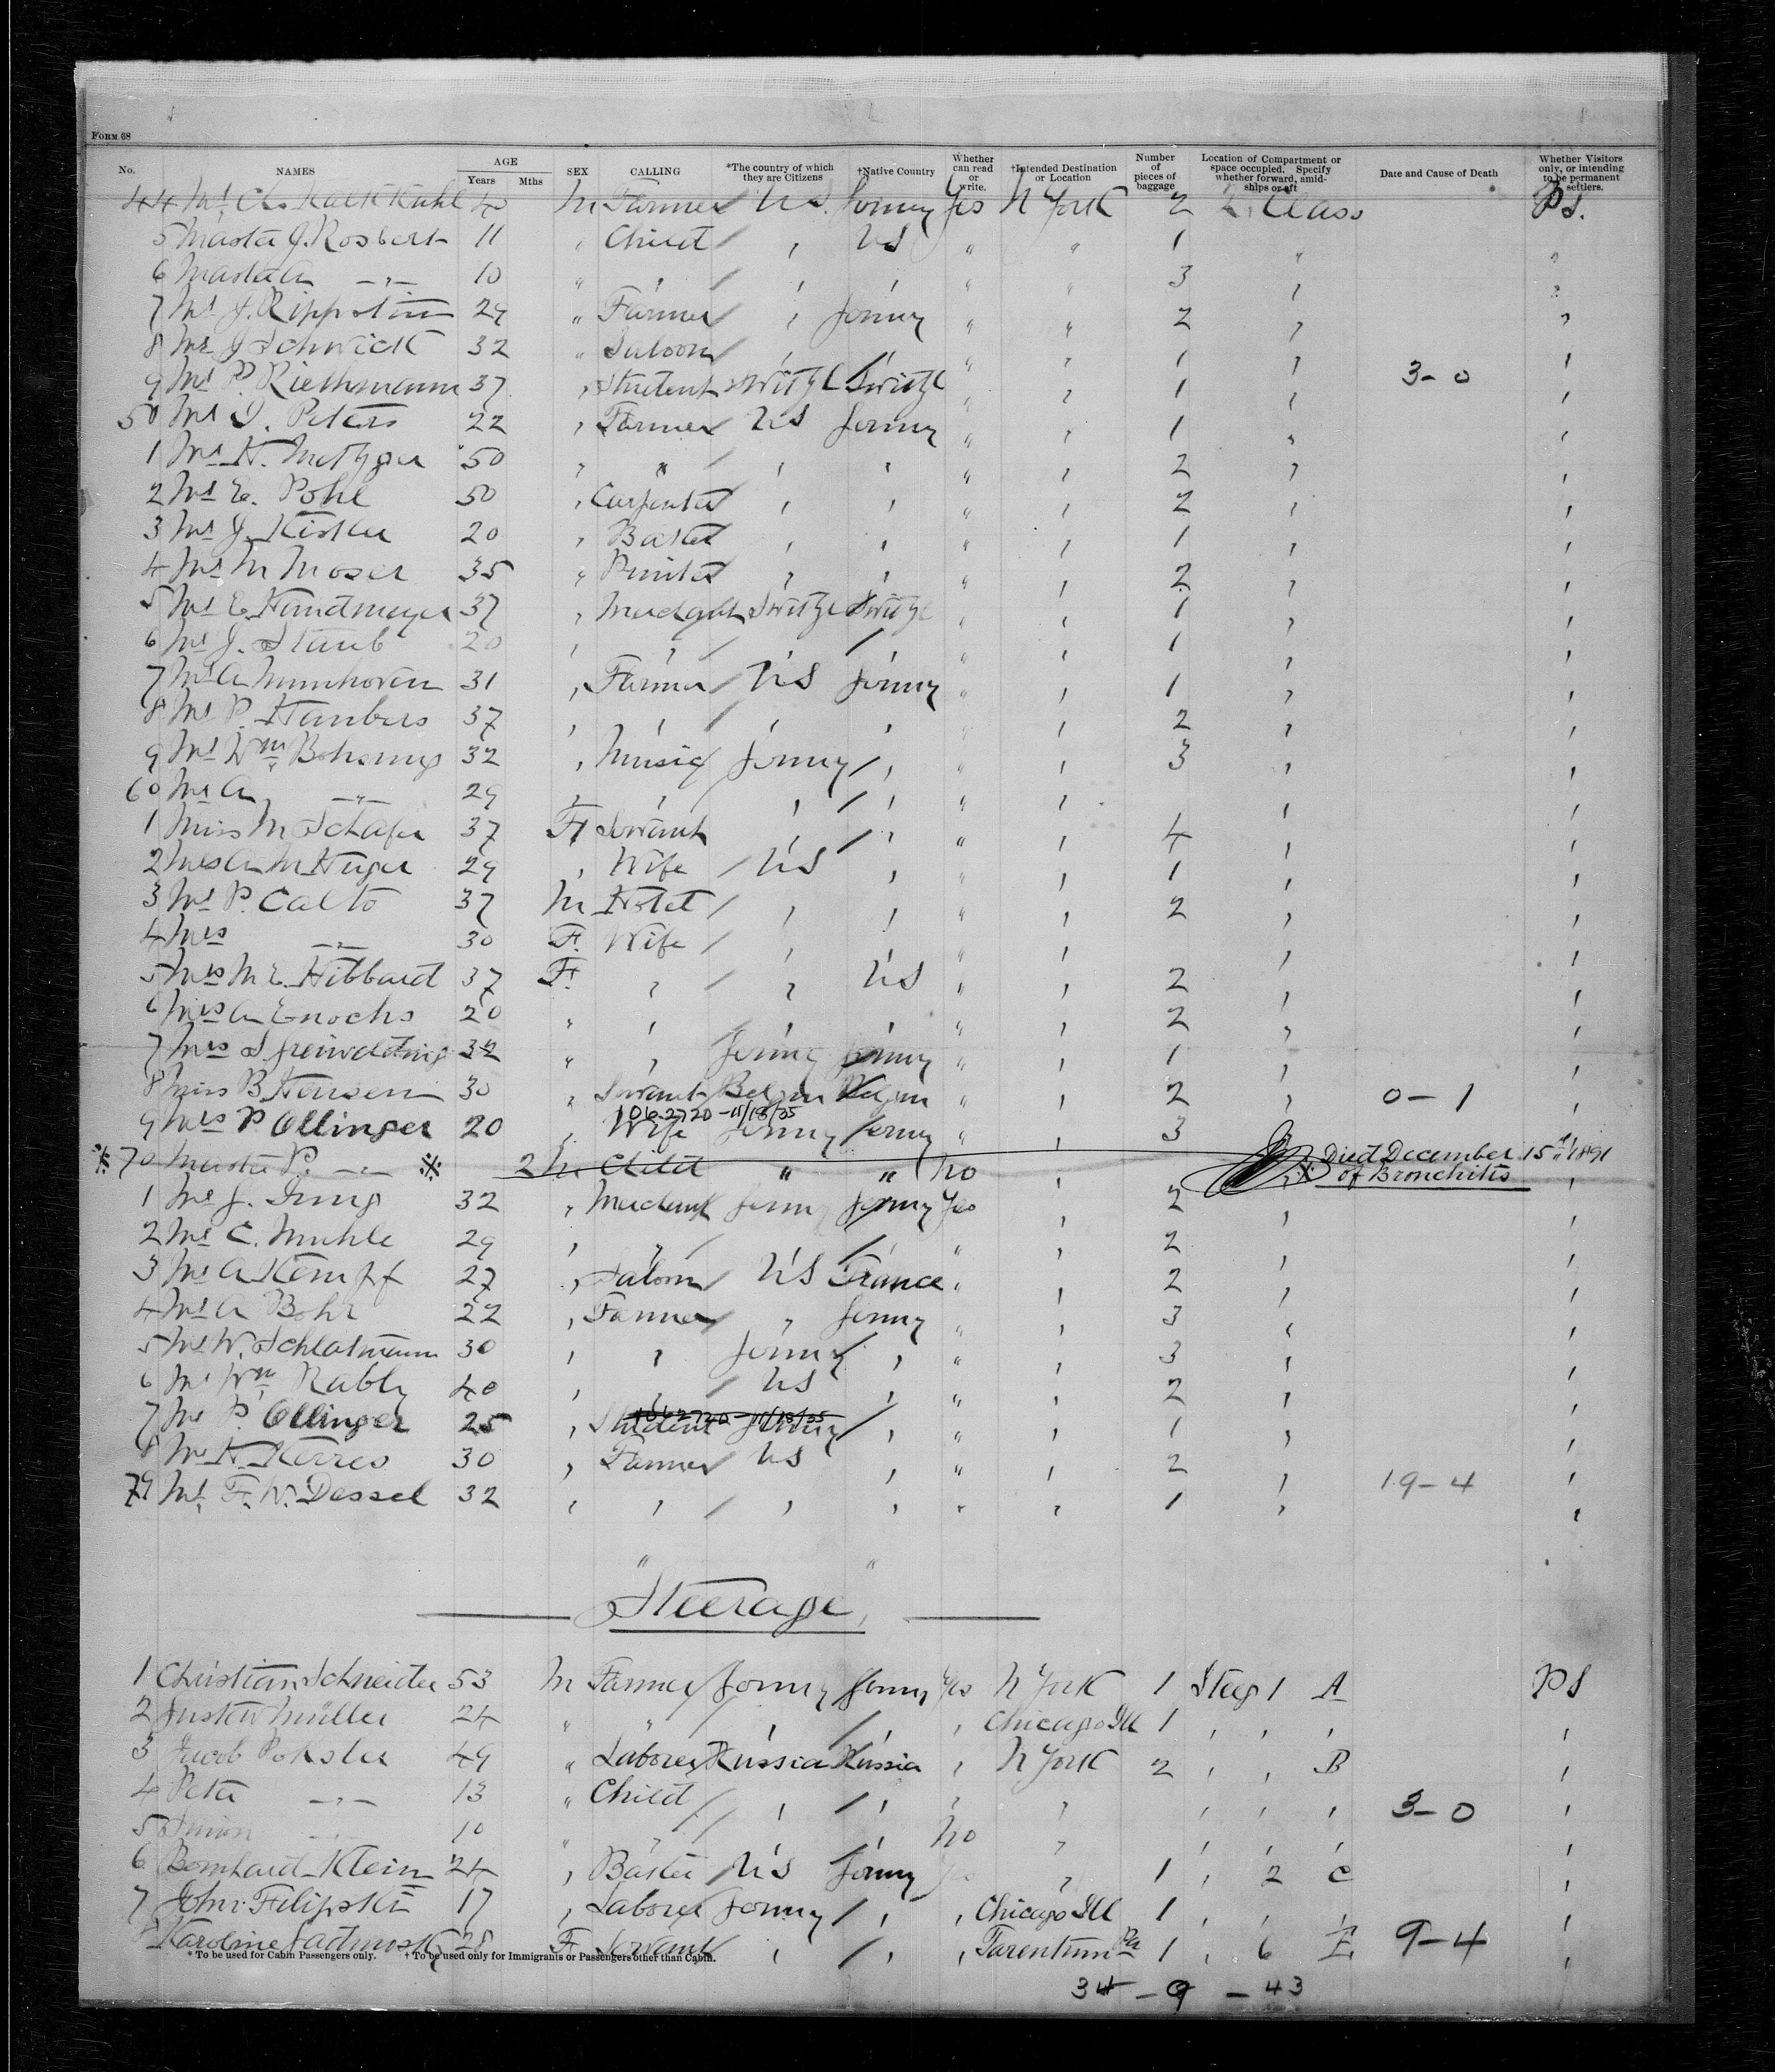 FORM 68
No. NAMES AGE Years Mths SEX CALLING *The country of which they are Citizens †Native Country Whether can read or write. †Intended Destination or Location Number of pieces of baggage Location of Compartment or space occupied. Specify whether forward, amidships or aft Date and Cause of Death Whether Visitors only, or intending to be permanent settlers.
44 Mr Ch. 40 M Farmer U.S. Germy Yes N York 2 2. Class P S.
5 Master J. Rosbert 11 " Child / , U S " " 1 " "
6 Master A —"— 10 " " / , , " " 3 , "
7 Mr J. Rippstein 29 " Farmer , Germy " " 2 , "
8 Mr J Schwick 32 " Saloon , , " , 1 , ,
9 Mr P. Riethmann 37 , Student Switzl Switzl " , 1 , 3 - 0 ,
50 Mr J. Peters 22 , Farmer U S Germy " , 1 , ,
1 Mr H. Metzger 50 , " / , , " , 2 , ,
2 Mr E. Pohl 50 , Carpenter , , " , 2 , ,
3 Mr J. Kistler 20 , Baker , , " , 1 , ,
4 Mr M Moser 35 " Printer , , " , 2 , ,
5 Mr E. Handmeyer 37 , Switzl Switzl " , 1 , ,
6 Mr J. Staub 20 , , / , / " , 1 , ,
7 Mr A 31 , Farmer / U S Germy " , 1 , ,
8 Mr P. Hambers 37 , , / , , " , 2 , ,
9 Mr Wm 32 , Music Germy / , " , 3 , ,
60 Mr A —"— 29 , , , / , " , , ,
1 Miss M Schafer 37 F Servant , / , " , 4 , ,
2 Mrs A M Huger 29 , Wife / U S , " , 1 , ,
3 Mr P. Calto 37 M Hotel / , , " , 2 , ,
4 Mrs —"— 30 F. Wife / , , " , , ,
5 Mrs M E. Hibbard 37 F. , / , U S " , 2 , ,
6 Mrs A Enochs 20 " , / , , " , 2 , ,
7 Mrs S 32 " , Germy Germy " , 1 , ,
8 Miss B Hansen 30 , Servant Belgm Belgm " , 2 , 0 - 1 ,
106-2720 - 11/18/35
9 Mrs P Ollinger 20 , Wife Germy Germy " , 3
※ 70 Master P. —"— ※ 2 M Child " " No , ※ Died December 15th 1891
of Bronchitis
1 Mr J. 32 , Merchant Germy Germy Yes , 2 , ,
2 Mr C. Muhle 29 , , / / , " , 2 , ,
3 Mr A Kempff 27 , Saloon U S France " , 2 , ,
4 Mr A Bohr 22 , Farmer , Germy " , 3 , ,
5 Mr W. Schlatmann 30 , , Germy , " , 3 , ,
6 Mr Wm Rably 40 , , / U S , " , 2 , ,
106-2720 - 11/18/35
7 Mr P. Ollinger 25 , Student Germy / , " , 1 , ,
8 Mr H. Kerres 30 , Farmer U S , " , 2 , ,
79 Mr F. W. Dessel 32 , , / , , " , 1 , 19 - 4 ,
" "
Steerage
1 Christian Schneider 53 M Farmer Germy Germy Yes N York 1 Steeg 1 A P S
2 Gustav Müller 24 " " / , / , Chicago Ill 1 , , , ,
3 Jacob Poksler 49 " Laborer Russia Russia , N York 2 , , B ,
4 Peter —"— 13 " Child / , / , , , , , , 3 - 0 ,
5 Simon —"— 10 " , / , , No , , , , ,
6 Bernhard Klein 24 , Baker U S Germy Yes , 1 , 2 C ,
7 John Filipski 17 , Laborer Germy / , , Chicago Ill 1 , , , ,
8 Karoline 28 F Servant , / , , Tarentum Pa 1 , 6 E. 9 - 4 ,
* To be used for Cabin Passengers only. † To be used only for Immigrants or Passengers other than Cabin.
34 - 9 - 43